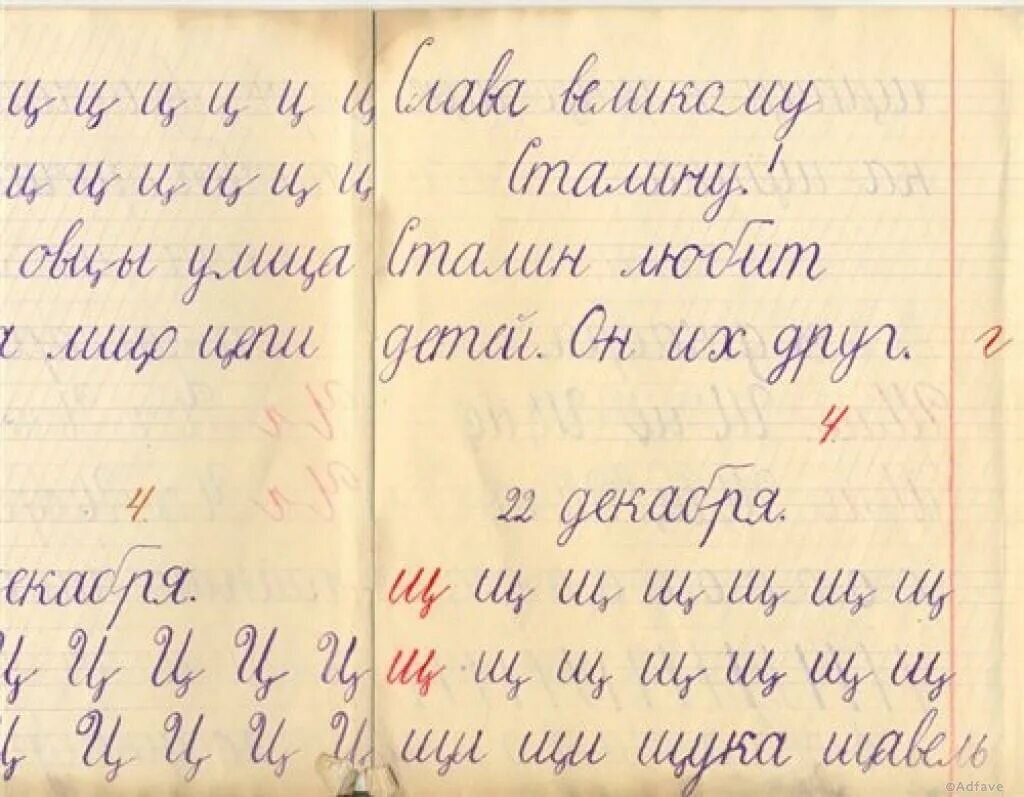 ц ц ц ц ц ц
ц ц ц ц ц ц
овцы улица
лицо цепи
4.
екабря.
Ц Ц Ц Ц Ц
Ц Ц Ц Ц Ц
Слава великому
Сталину!
Сталин любит
детей. Он их друг.
г
4.
22 декабря.
щ щ щ щ щ щ щ
щ щ щ щ щ щ щ
щи щи щука щавель
©Adfave